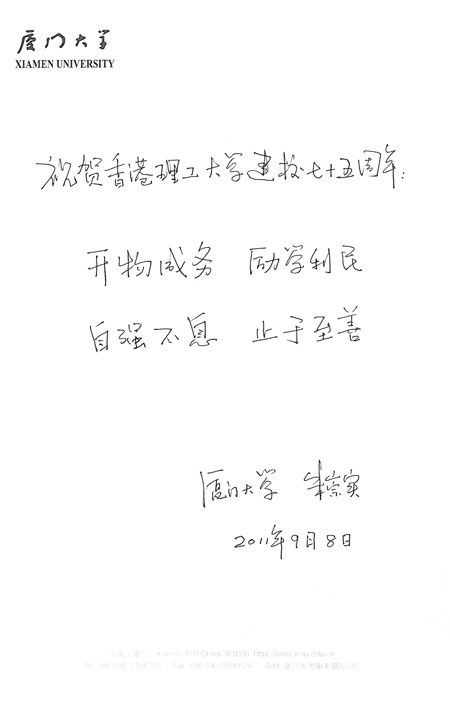 厦门大学
XIAMEN UNIVERSITY
祝贺香港理工大学建校七十五周年:
开物成务 励学利民
自强不息 止于至善
厦门大学 朱崇实
2011年9月8日